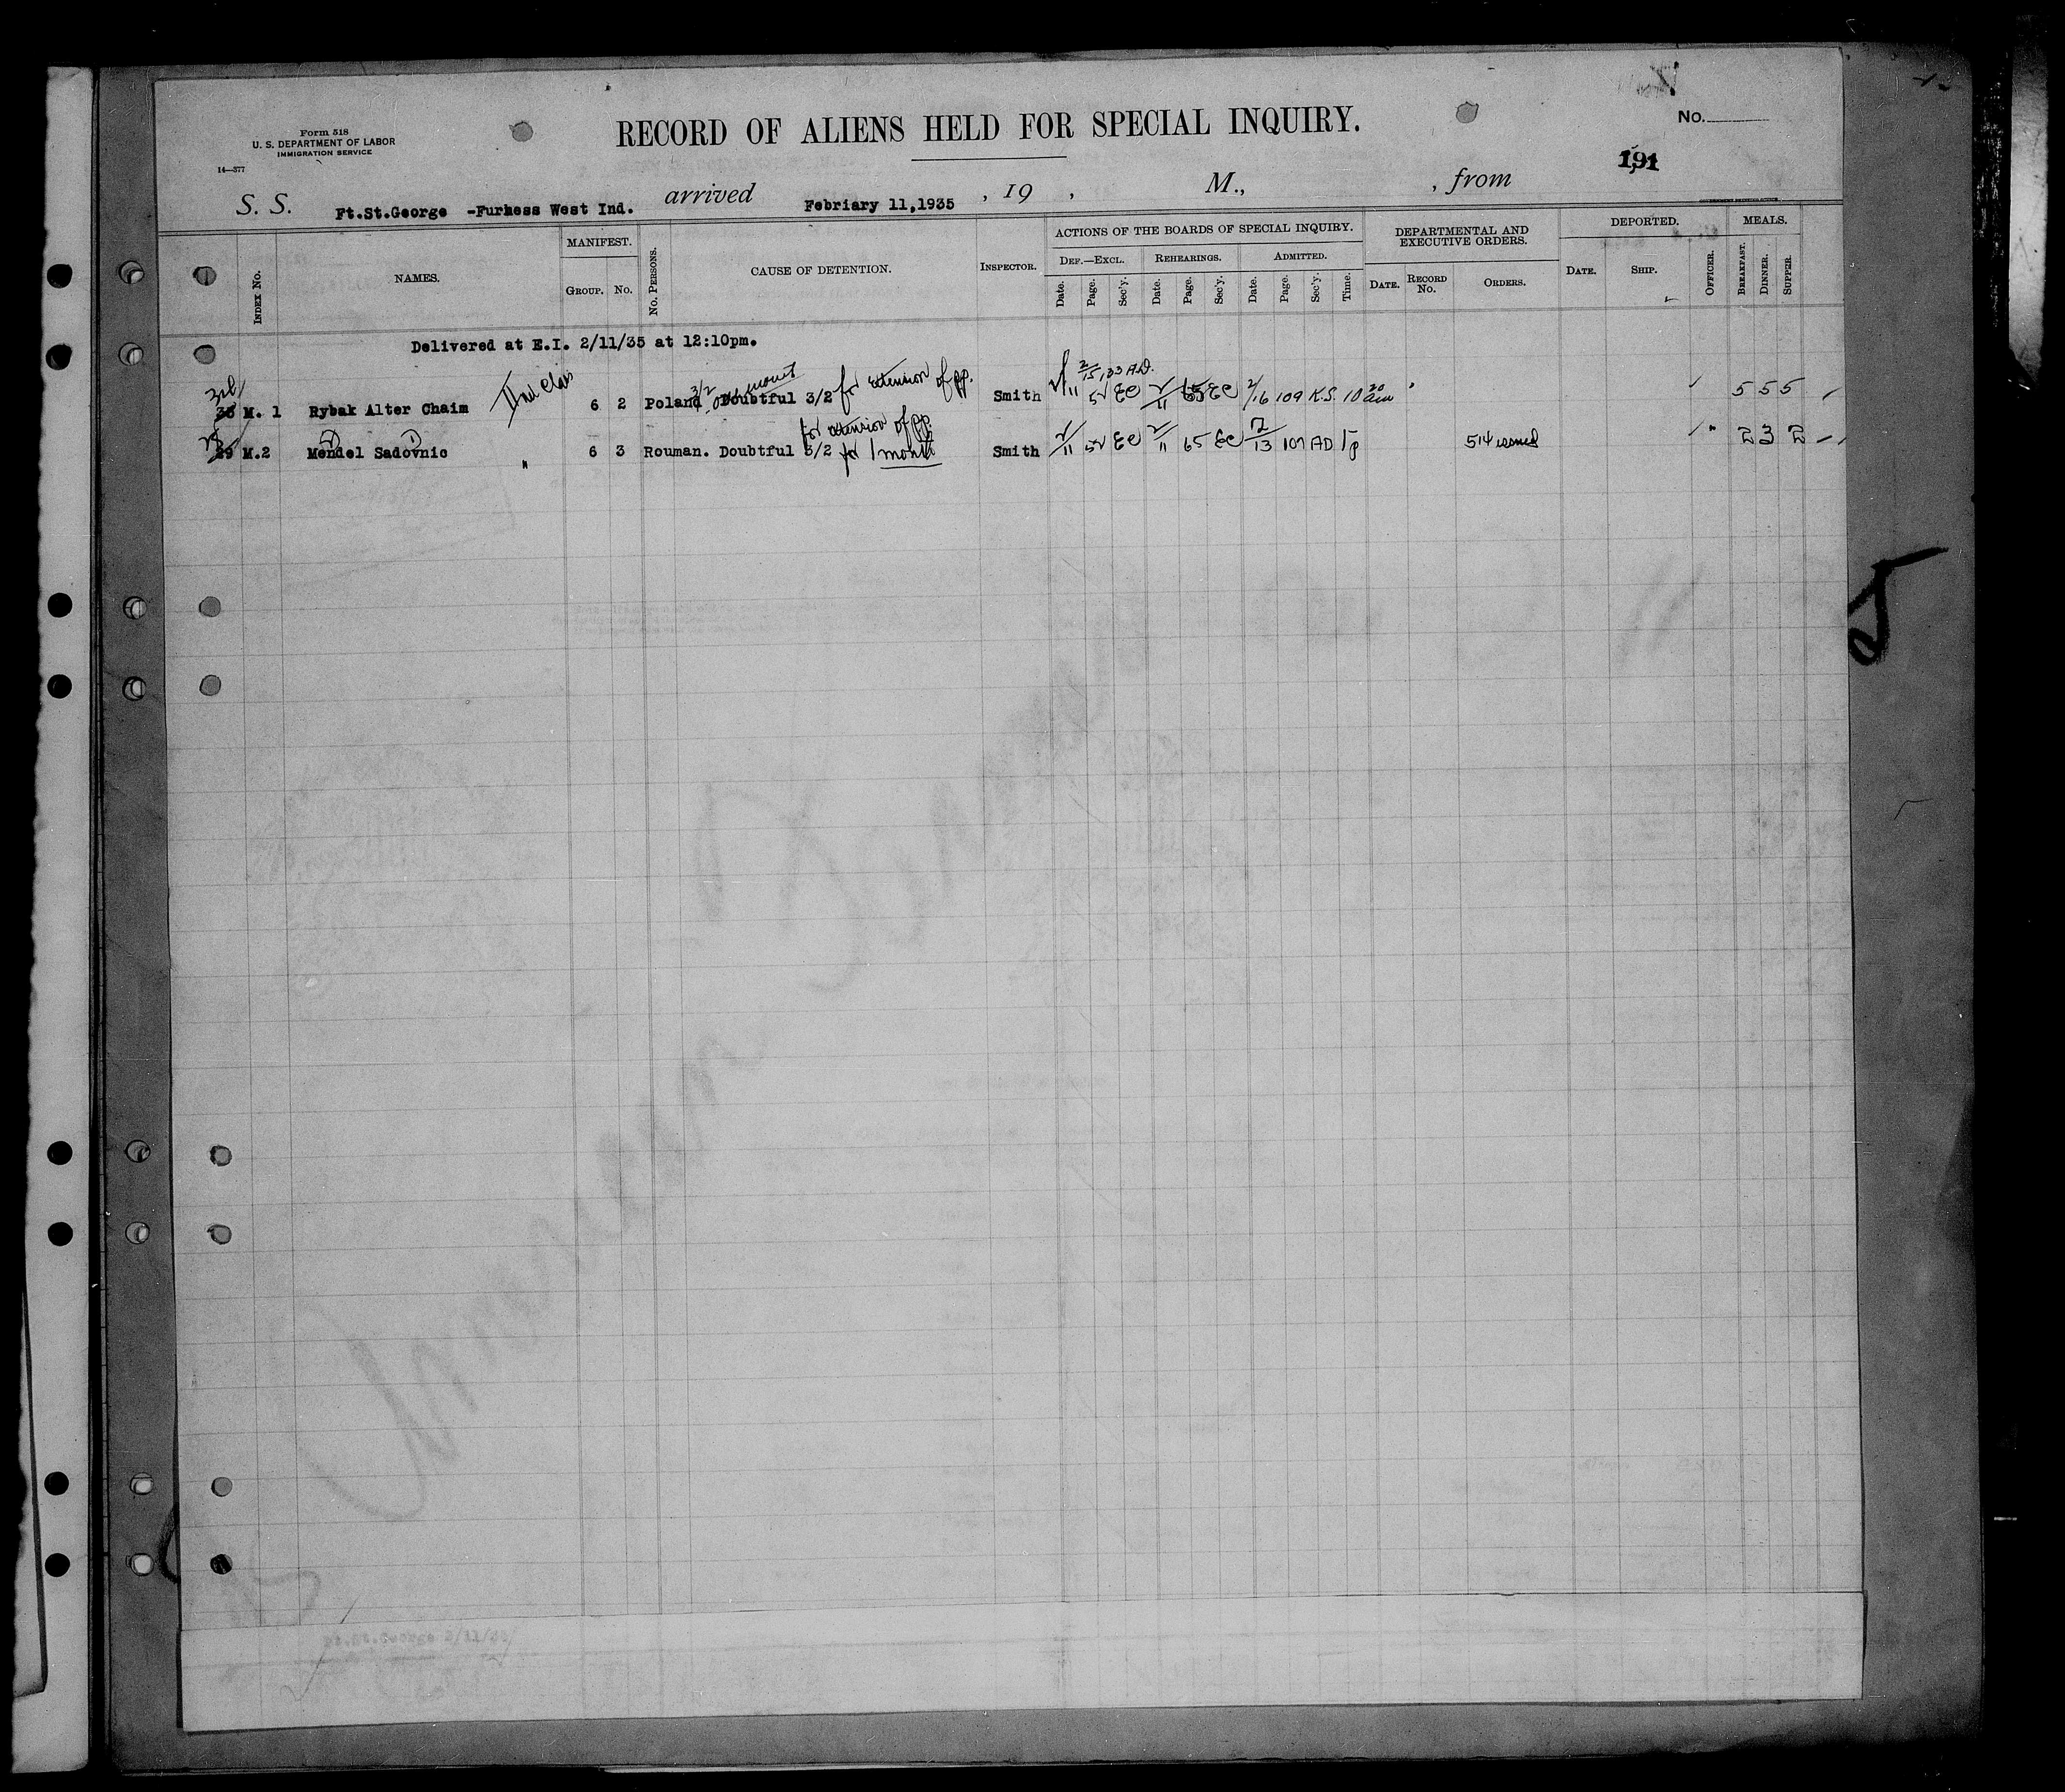 Form 518
U. S. DEPARTMENT OF LABOR
IMMIGRATION SERVICE
14—377
RECORD OF ALIENS HELD FOR SPECIAL INQUIRY.
No.
191
S. S. Ft.St.George -Furness West Ind. arrived Febriary 11,1935 , 19 , M., , from
INDEX No. NAMES. MANIFEST. GROUP. No. No. PERSONS. CAUSE OF DETENTION. INSPECTOR. ACTIONS OF THE BOARDS OF SPECIAL INQUIRY. DEF.—EXCL. Date. Page. Sec'y. REHEARINGS. Date. Page. Sec'y. ADMITTED. Date. Page. Sec'y. Time. DEPARTMENTAL AND EXECUTIVE ORDERS. DATE. RECORD No. ORDERS. DEPORTED. DATE. SHIP. OFFICER. MEALS. BREAKFAST. DINNER. SUPPER.
Delivered at E.I. 2/11/35 at 12:10pm.
M. 1 Rybak Alter Chaim 6 2 Poland Doubtful 3/2 for extension of pp. Smith 2/11 52 EC 2/11 65 EC 2/16 109 K.S. 10 30 am 5 5 5
for extension of pp
M.2 Mendel Sadovnic " 6 3 Rouman. Doubtful 3/2 for 1 month Smith 2/11 52 EC 2/11 65 EC 2/13 107 AD 1p 514 issued 2 3 2
Ft.St.George 2/11/35